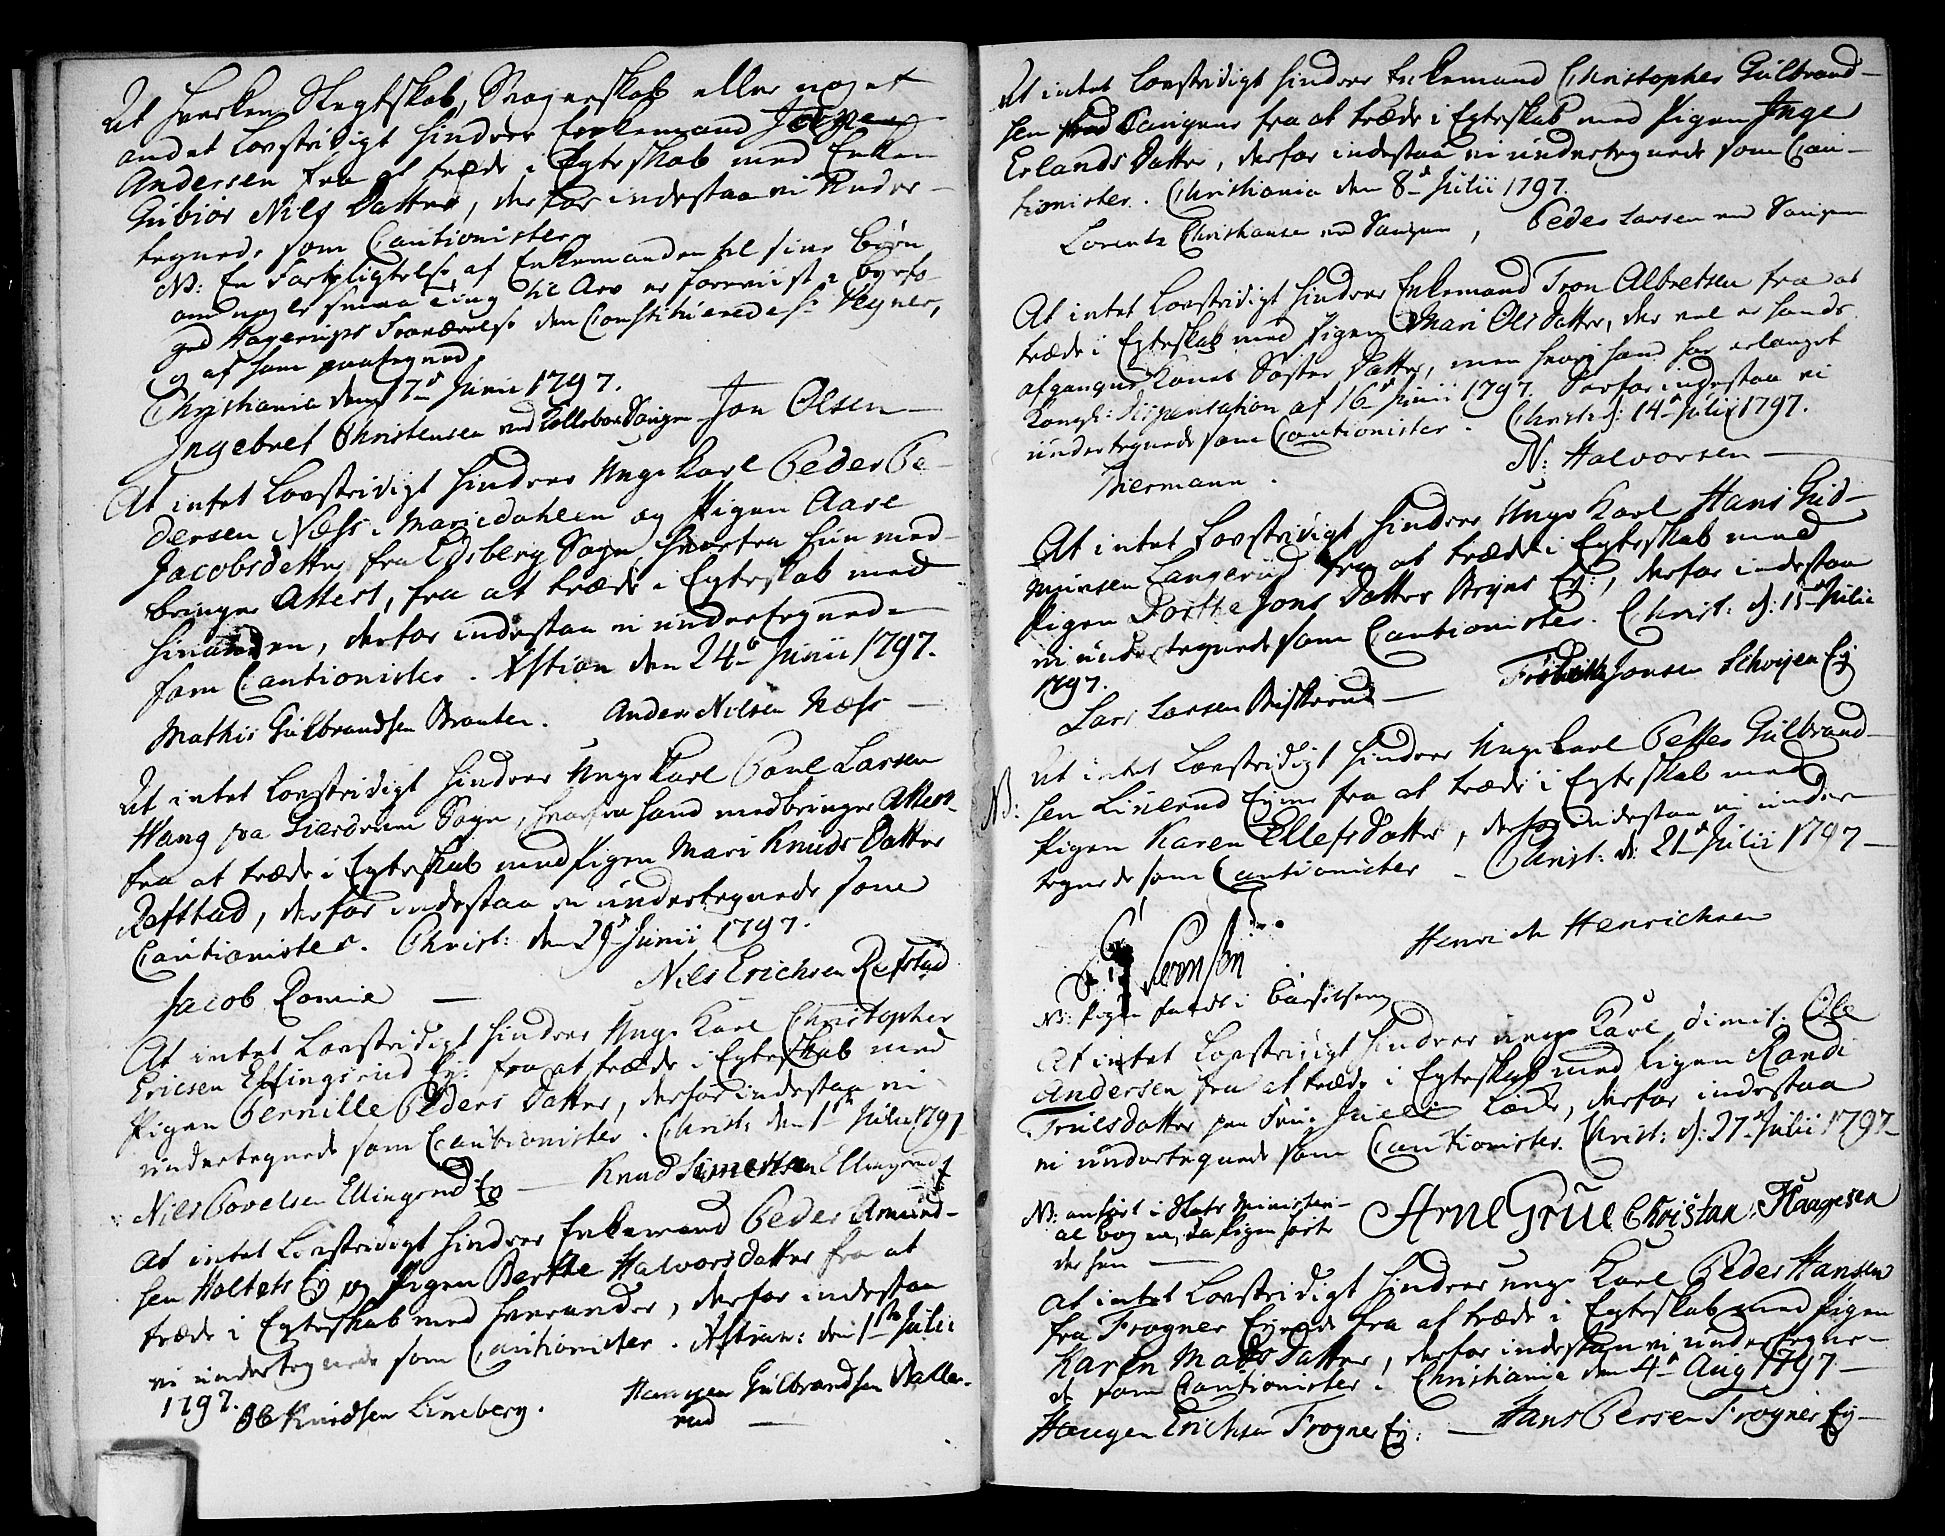 At hverken Slegtskab, Svogerskab eller noget
andet Lovstridigt hindrer Enkemand
Andersen fra at træde i Egteskab med Enken
Gubiør Nils Datter, derfor indestaa vi Under-
tegnede som Cautionister.
NB: En Forpligtelse af Enkemanden til sine Børn
om nogle smaa Ting til Arv er foreviist i Byefo-
ged Hagerups Fraværelse den Constituerede Hr Wegner,
og af ham paategned.
Christiania den 17de Junii 1797.
Ingebret Christensen ved Saugene Jon Olsen
At intet Lovstridigt hindrer Unge Karl Peder Pe-
dersen Næss i Mariedahlen og Pigen Aase
Jacobsdatter fra Edsberg Sogn hvorfra hun med-
bringer Attest, fra at træde i Egteskab med
hinanden, derfor indestaa vi undertegnede
som Cautionister. den 24de Junii 1797.
Mathis Gulbrandsen Braaten. Anders Nilsen Næss
At intet Lovstridigt hindrer Unge Karl Poul Larsen
Hang paa Gierdrum Sogn, hvorfra hand medbringer Attest
fra at træde i Egteskab med Pigen Mari Knuds Datter
Refstad, derfor indestaa vi undertegnede som
Cautionister. Christ: den 29de Junii 1797.
Nils Erichsen Refstad
Jacob
At intet Lovstridigt hindrer Unge Karl Christopher
Ericsen Ellingsrud Ey: fra at træde i Egteskab med
Pigen Pernille Peders Datter, derfor indestaa vi
undertegnede som Cautionister. Christ: den 1ste Julii 1797
Nils Povelsen Ellingsrud Ey Knud Simensen Ellingsrud
At intet Lovstridigt hindrer Enkemand Peder Amund-
sen Holtets Ey og Pigen Berthe Halvors Datter fra at
træde i Egteskab med hverandre, derfor indestaa
vi undertegnede som Cautionister. den 1ste Julii
1797. Knudsen Lineberg. Haagen Gulbrandsen Kaller-
rud
At intet Lovstridigt hindrer Enkemand Christopher Gulbrand-
sen Saugene fra at træde i Egteskab med Pigen Inge
Erlands Datter, derfor indestaa vi undertegnede som Cau-
tionister. Christiania den 8de Julii 1797.
Lorents Christiansen ved Saugene, Peder Larsen ved Saugene
At intet Lovstridigt hindrer Enkemand Tron Albretsen fra at
træde i Egteskab med Pigen Mari Ols Datter, der vel er hands
afgangne Kones Søster Datter, men hvorj hand har erlanget
Kongl: Dispensation af 16de Junii 1797. Derfor indestaa vi
undertegnede som Cautionister. Christ: d: 14de Julii 1797.
N: Halvorsen
Biermann.
At intet Lovstridigt hindrer Unge Karl Hans Gud-
munsen Langerud fra at træde i Egteskab med
Pigen Dorthe Jons Datter Bryns Ey:, derfor indestaa
vi undertegnede som Cautionister. Christ: d: 15de Julii
1797.
Lars Larsen Jonsen Schøyen Ey
At intet Lovstridigt hindrer Unge Karl Petter Gulbrand-
NB: sen Eyerne fra at træde i Egteskab med
Pigen Karen Ellefs Datter, derfor indestaa vi under-
tegnede som Cautionister. Christ: d: 21de Julii 1797
Henrich Henrichsen
NB: Pigen laae i Barselseng
At intet Lovstridigt hindrer unge Karl dimit: Ole
Andersen fra at træde i Egteskab med Pigen Randi
Truls Datter paa Frue Løcke, derfor indestaa
vi undertegnede som Cautionister. Christ: d: 27de Julii 1797
NB: anført i Slots Ministeri- Arne Grue Christian Haagesen
al bogen, da Pigen hørte
der hen
At intet Lovstridigt hindrer unge Karl Peder Hansen
fra Frogner Eyende fra at træde i Egteskab med Pigen
Karen Mads Datter, derfor indestaa vi undertegne-
de som Cautionister. Christiania den 4de Aug 1797
Haagen Erichsen Frogner Ey: Hans Persen Frogner Ey